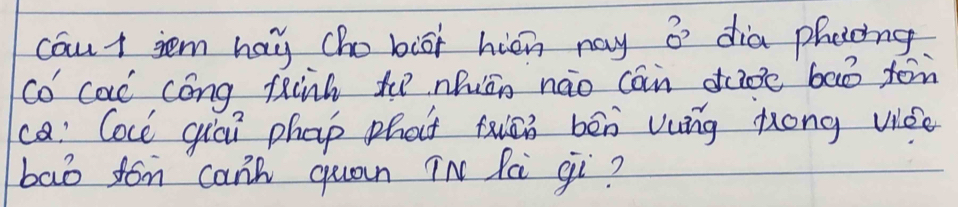 câu 1 em hãy cho biết hiện nay ở địa phương
có các công trình tự nhiên nào cần được bảo tồn
c2: Các giải pháp phát triển bền vững trong việc
bảo tồn cảnh quan TN là gì?